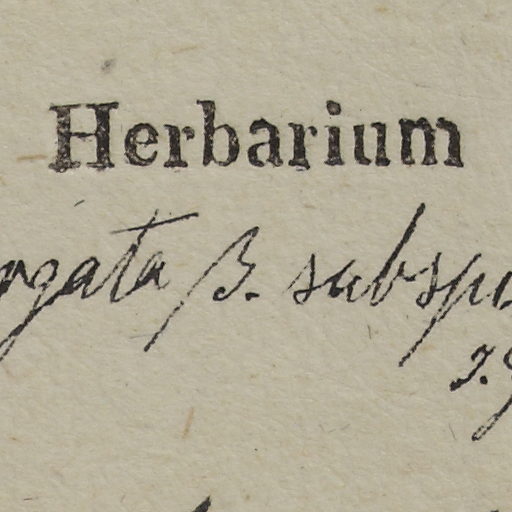 Herbarium
rgata β. subsp
J.